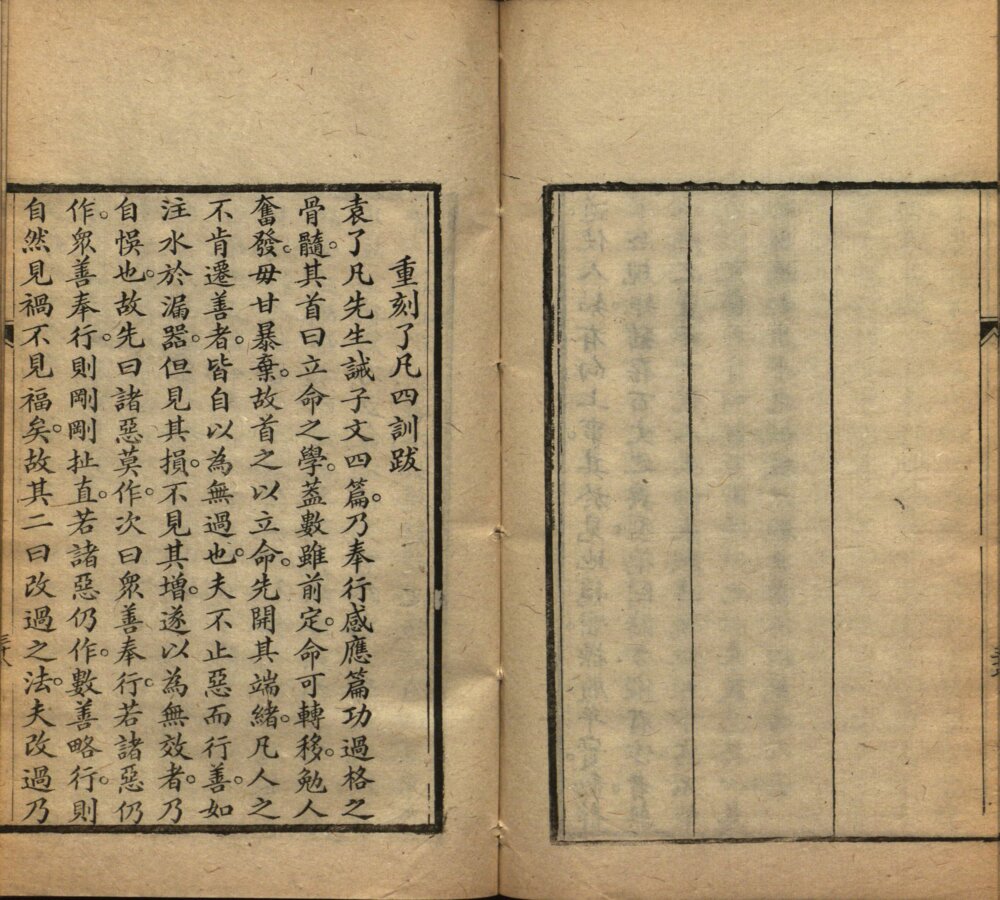 重刻了凡四訓跋
袁了凡先生誡子文四篇。乃奉行感應篇功過格之
骨髓。其首曰立命之學。葢數雖前定。命可轉移。勉人
奮發。毋甘暴棄。故首之以立命。先開其端緒。凡人之
不肯遷善者。皆自以為無過也。夫不止惡而行善。如
注水於漏器。但見其損。不見其增。遂以為無效者。乃
自悞也。故先曰諸惡莫作。次曰衆善奉行。若諸惡仍
作。衆善奉行。則剛剛扯直。若諸惡仍作。數善略行。則
自然見禍不見福矣。故其二曰改過之法。夫改過乃